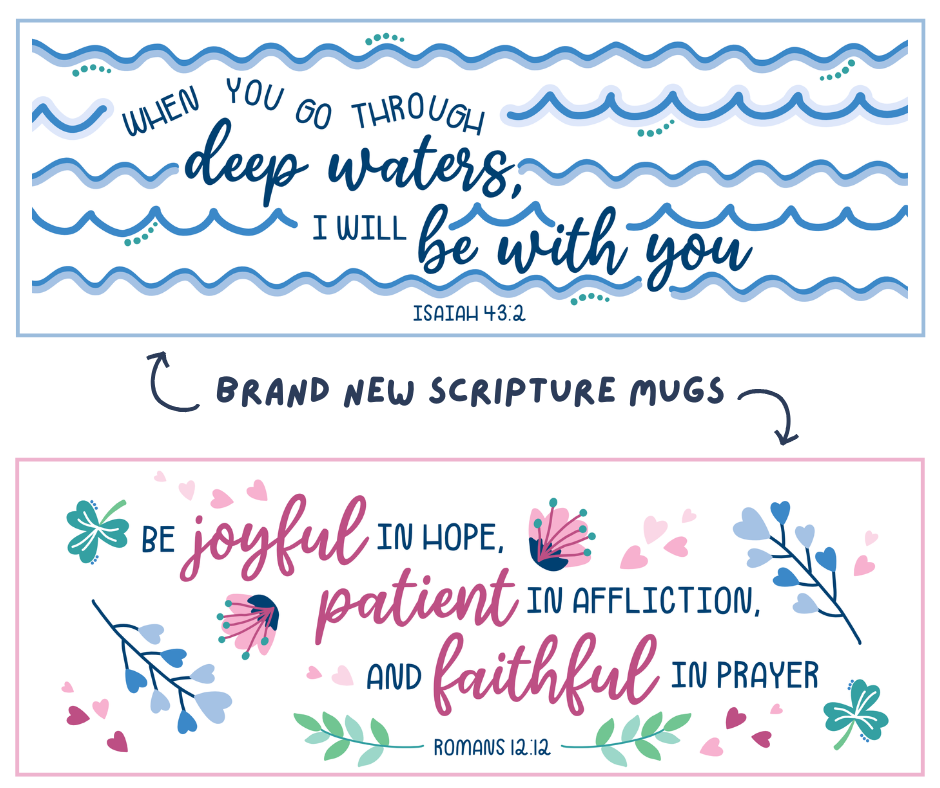 WHEN YOU GO THROUGH
deep waters,
I WILL be with you
ISAIAH 43:2
BRAND NEW SCRIPTURE MUGS
BE joyful IN HOPE,
patient IN AFFLICTION,
AND faithful IN PRAYER
ROMANS 12:12